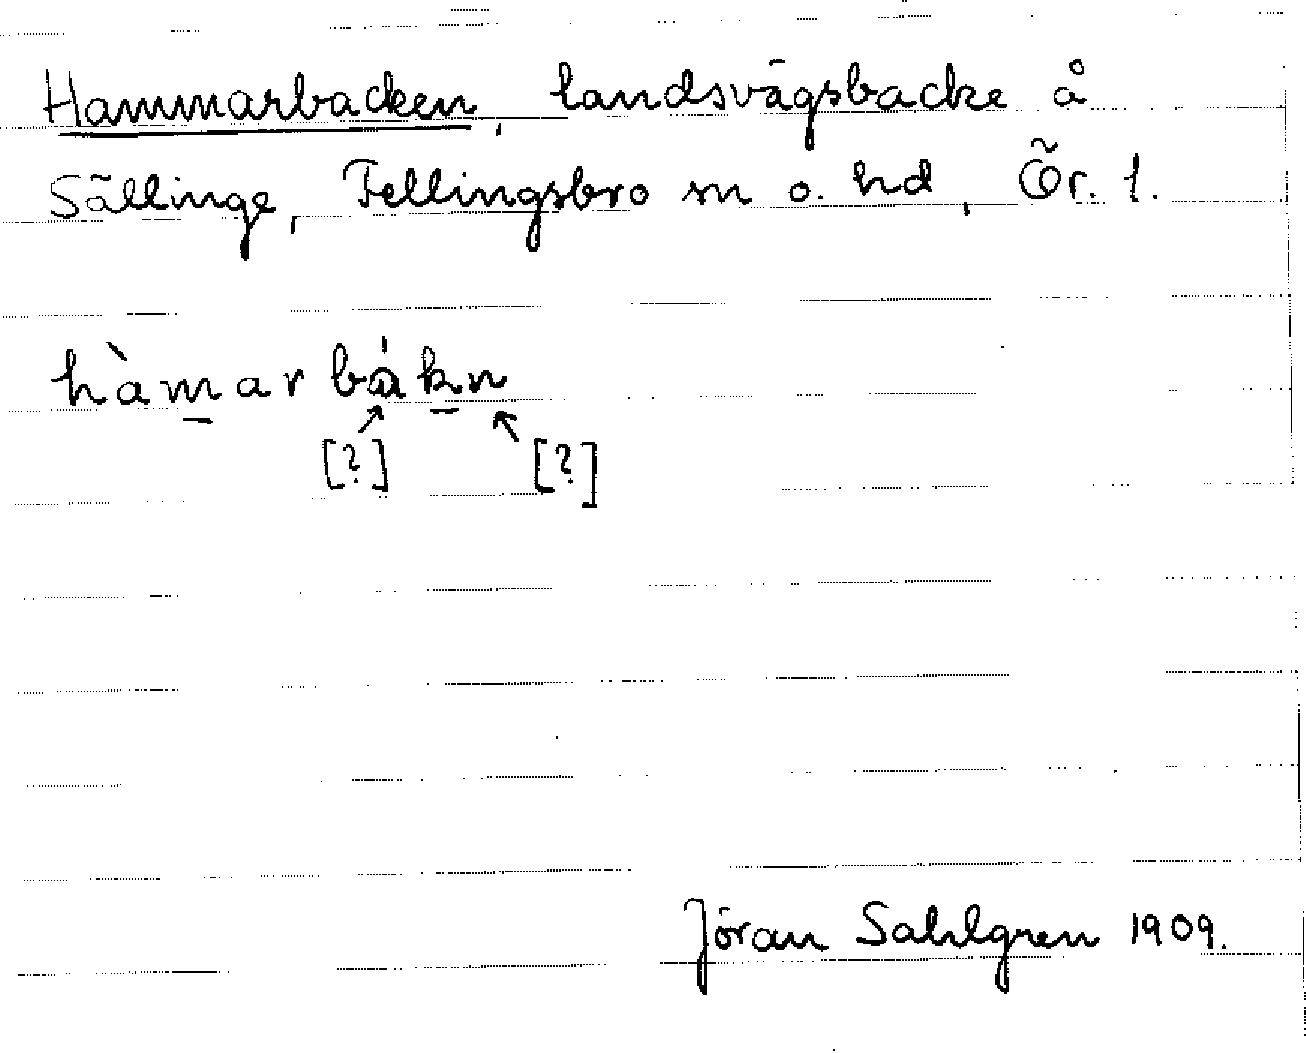 Hammarbacken, landsvägsbacke å
Sällinge, Fellingsbro sn o. hd, Ör. l.
hàmarbákn
[?] [?]
Jöran Sahlgren 1909.